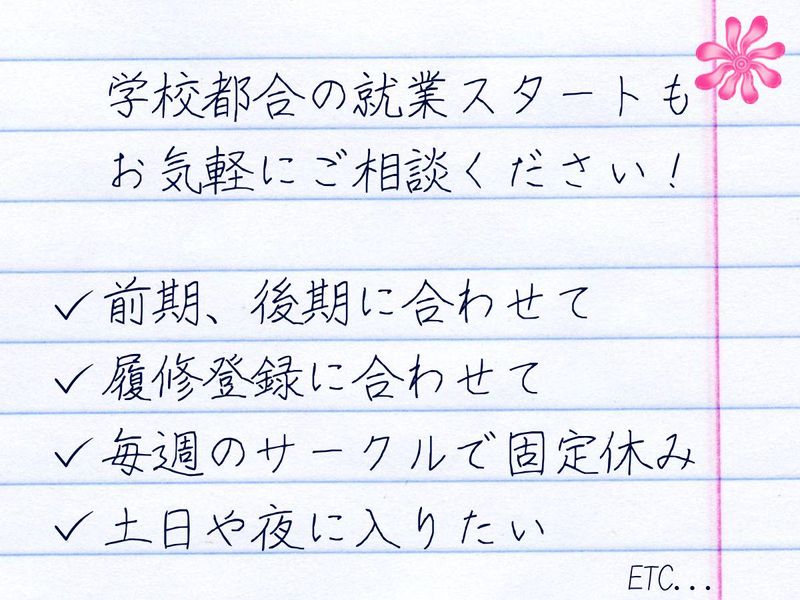 学校都合の就業スタートも
お気軽にご相談ください！
✓前期、後期に合わせて
✓履修登録に合わせて
✓毎週のサークルで固定休み
✓土日や夜に入りたい
ETC...